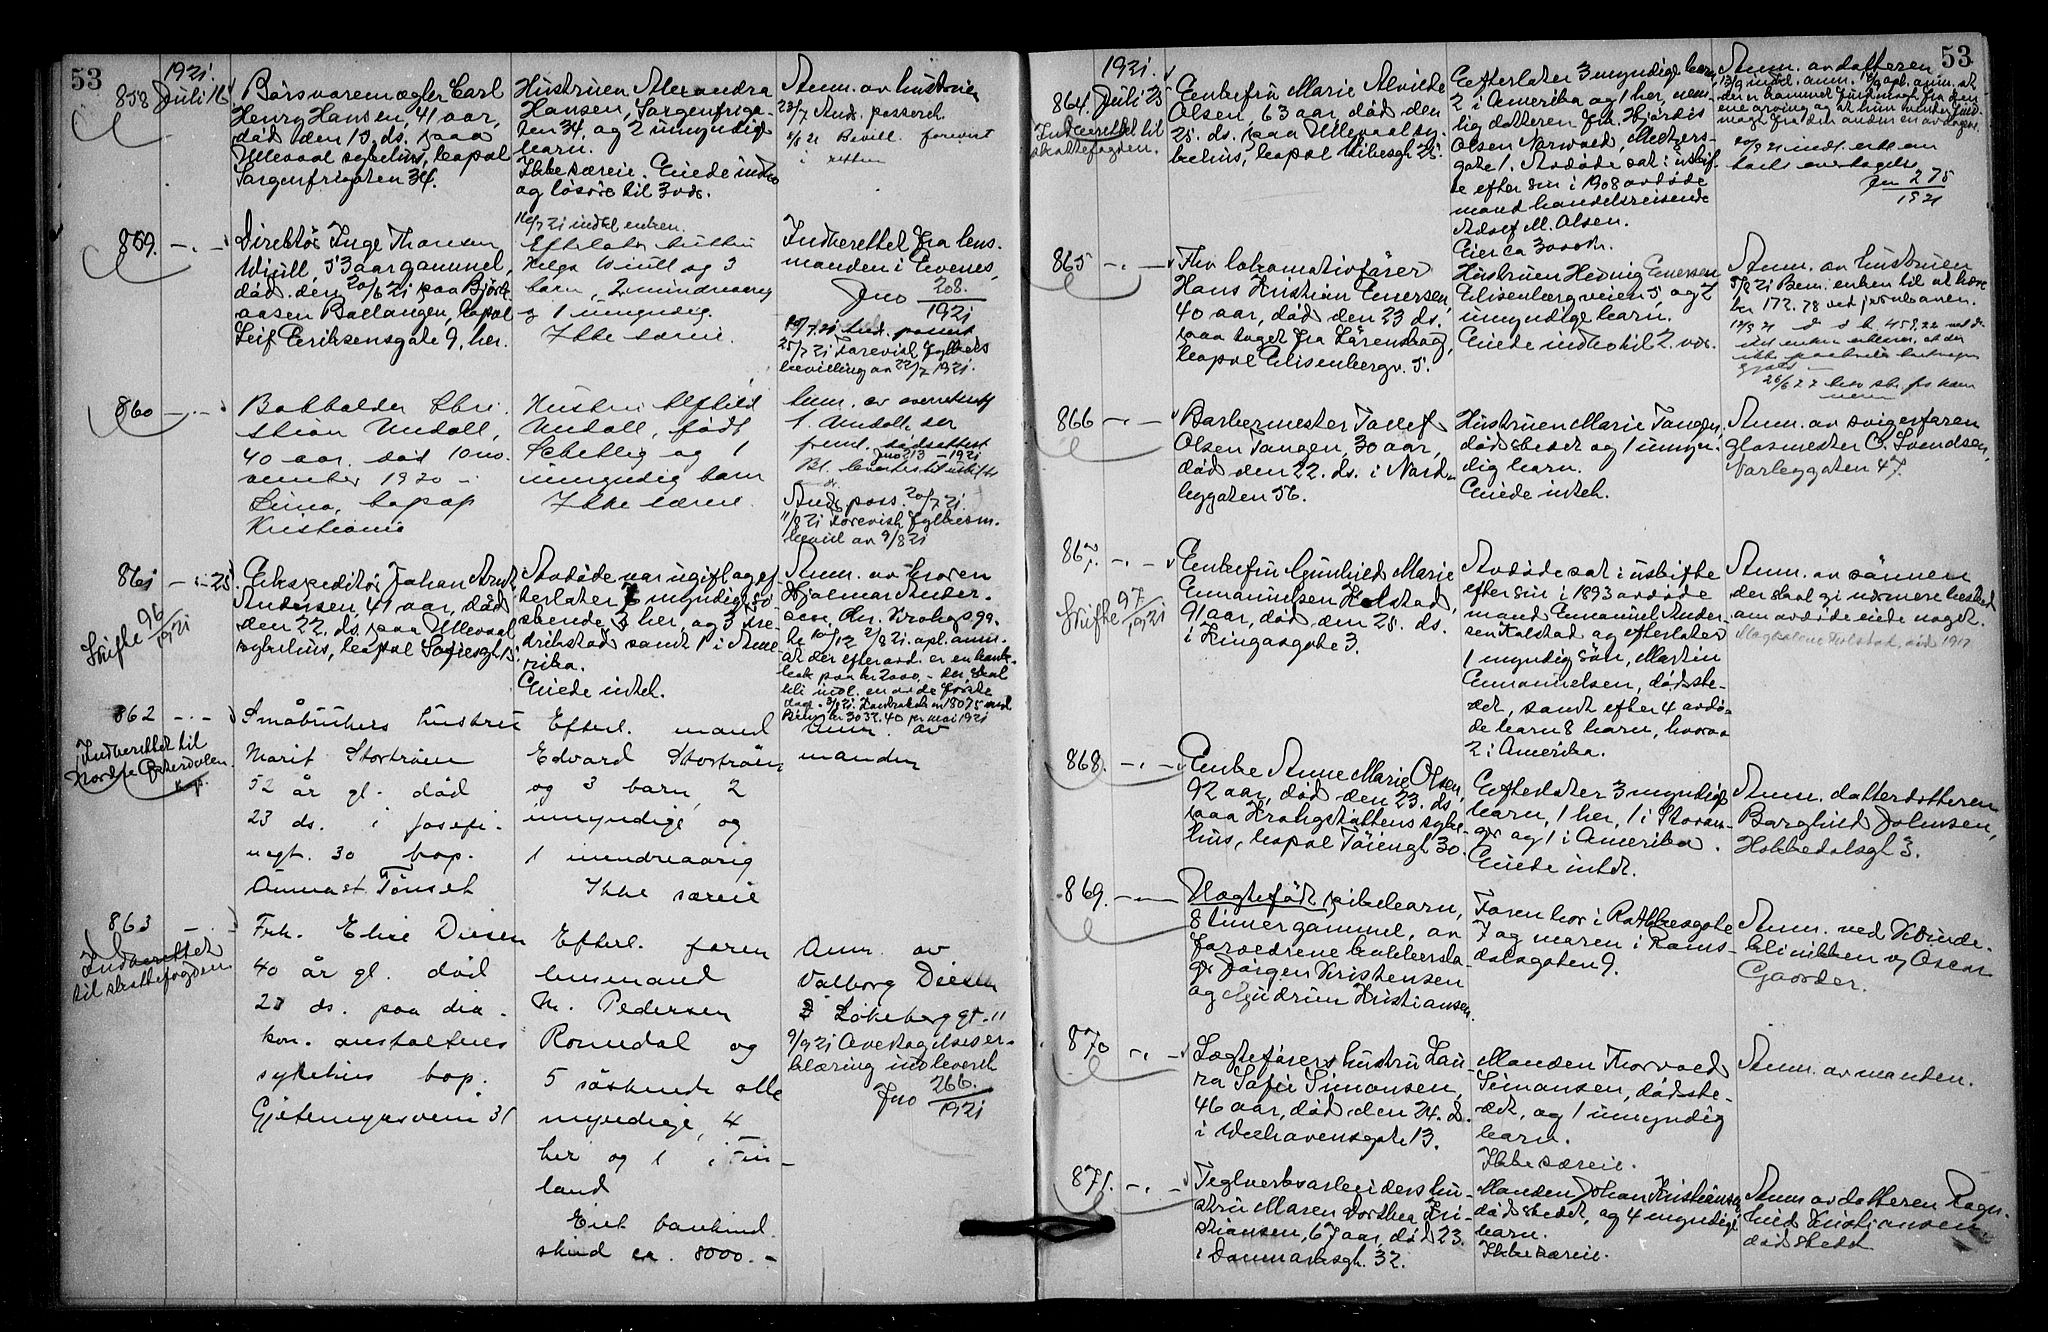 53
1921.
858 Juli 16
Børsvaremægler Carl
Henry Hansen, 41 aar,
død den 10 ds. paa
Ullevaal sykehus, bopæl
Sorgenfrigaten 34.
Hustruen Alexandra
Hansen, Sorgenfriga-
ten 34, og 2 umyndige
barn.
Ikke særeie. Eiede indbo
og løsøre til 3 vær.
Anm. av hustruen
23/7 Andr. passersk.
Bevill. forevist
i retten
859. -.-
Direktør Inge Thorsen
Wiull, 53 aar gammel,
død den 20/6 21 paa Bjørk-
aasen Ballangen, bopæl
Leif Eriksensgate 9, her.
16/7 21 indk. enken.
Efterlater hustru
Helga Wiull og 3
barn, 2 mindreaarig
og 1 umyndig.
Ikke særeie.
Indberettet fra lens-
manden i Evenes,
Jno 208.
1921
25/7 21 Forevist fylkets
bevilling av 22/7 1921.
860 -.-
Bokholder Chri-
stian Undall,
40 aar død 10 no-
vember 1920 i
Lima, bopæl
Kristiania
Hustru
Undall, født
Schetlig og 1
umyndig barn
Ikke særeie.
Anm. av overretssf
Undall, ser
Jno 213 - 1921
Andr. pass. 20/7 21.
11/8 21 Forevist fylkesm.
bevill av 9/8 21
861 -.- 25.
Skifte 96
1921
Ekspeditør Johan Arnt
Andersen, 41 aar, død
den 22. ds. paa Ullevaal
sykehus, bopæl Sofiesgt 15.
Avdøde var ugift og ef-
terlater 6 myndige sø-
skende 2 her, og 3 Fre-
drikstad samt 1 i Ame
rika.
Eiede intet.
Anm. av broren
Hjalmar Ander-
sen, Chr. Krohgsga-
te 10/12 2/8 21. opl. anm.
at der efter avd. er en bank-
bok paa kr 2000,- der skal
bli indl. en av de første
862 -.-
Indberettet til
Nordre Østerdalen
Småbrukers hustru
Marit Storbrøen
52 år gl. død
23 ds. i Josefi-
negt. 30 bop.
Tønset
Efterl. mand
Edvard Storbrøen
og 3 barn, 2
umyndige og
1 mindreaarig
Ikke særeie
Anm. av
manden
863 -.-
Indberettet
til skattefogden
Frk. Elise Diesen
40 år gl. død
23 ds. paa dia-
kon. anstaltens
sykehus bop.
Gjetemyrsvein 31
Efterl. faren
lensmand
N. Pedersen
Romedal og
5 søskende alle
myndige, 4
her og 1 i Fin-
land
Eiet bankind-
skud ca. 8000.-
Anm. av
Valborg Diesen
Løkeberggt. 11
9/9 21 Overtagelseser-
klæring indleveret
Jno 266.
1921
53
1921.
864. Juli 25
Indberettet til
skattefogden.
Enkefru Marie Alvilde
Olsen, 63 aar, død den
25. ds. paa Ullevaal sy-
kehus, bopæl Vibesgt 25.
Efterlater 3 myndige barn,
2 i Amerika og 1 her, nem-
lig datteren frk. Hjørdis
Olsen Norvald, Meltzers-
gate 1. Avdøde sat i uskif-
te efter sin i 1908 avdøde
mand handelsreisende
Adolf M. Olsen.
Eier ca 3000 kr.
Anm. av datteren
Jno 275
1921
865 -.-
Fhv lokomotivfører
Hans Kristian Evensen,
40 aar, død den 23 ds.
paa toget fra Lørenskog,
bopæl Elisenbergv. 5.
Hustruen Hedvig Evensen
Elisenbergveien 5, og 2
umyndige barn.
Eiede indbo til 2. vær.
Anm. av hustruen
5/8 21 Bem. enken til at hæve
kr 172.78 ved jernbanen.
866 -.-
Barbermester Tollef
Olsen Tangen, 30 aar,
død den 22. ds. i Nord-
byggaten 56.
Hustruen Marie Tangen,
dødsstedet og 1 umyn-
dig barn.
Eiede intet.
Anm. av svigerfaren
glasmester C. Svendsen,
Norbyggaten 47.
867. -.-
Skifte 97
1921
Enkefru Gunhild Marie
Emanuelsen Holstad,
91 aar, død den 25. ds.
i Kingosgate 3.
Avdøde sat i uskifte
efter sin i 1893 avdøde
mand Emanuel Ander-
sen Holstad og efterlater
1 myndig søn, Martin
Emanuelsen, dødsste-
det, samt efter 4 avdø-
de barn 8 barn, hvorav
2 i Amerika.
Anm. av sønnen
der skal gi nærmere besked
om avdøde eiede noget.
868. -.-
Enke Anne Marie Olsen,
92 aar, død den 23. ds.
paa Krohgstøttens syke-
hus, bopæl Tøiengt 30.
Efterlater 3 myndige
barn, 1 her, 1 i Stavan-
ger og 1 i Amerika.
Eiede intet.
Anm. datterdatteren
Borghild Johnsen,
Hobbedalsgt 3.
869. -.-
Uegtefødt pikebarn,
8 timer gammel, av
forældrene kobbersla-
ger Jørgen Kristensen
og Gudrun Kristiansen.
Faren bor i Rathkesgate
7 og moren i Roms-
dalsgaten 9.
Anm. ved Kvinde-
klinikken v/ Oscar
Gaarder.
870 -.-
Lægteførers hustru Lau-
ra Sofie Simonsen,
46 aar, død den 24. ds.
i Welhavensgate 13.
Manden Thorvald
Simonsen, dødsste-
det, og 1 umyndig
barn.
Ikke særeie.
Anm. av manden.
871. -.-
Teglverksarbeiders hu-
stru Maren Dorthea Kri-
stiansen, 67 aar, død 23.
i Danmarksgt. 32.
Manden Johan Kristiansen,
dødsstedet, og 4 myndige
barn.
Ikke særeie.
Anm. av datteren Ragn-
hild Kristiansen
dødsstedet